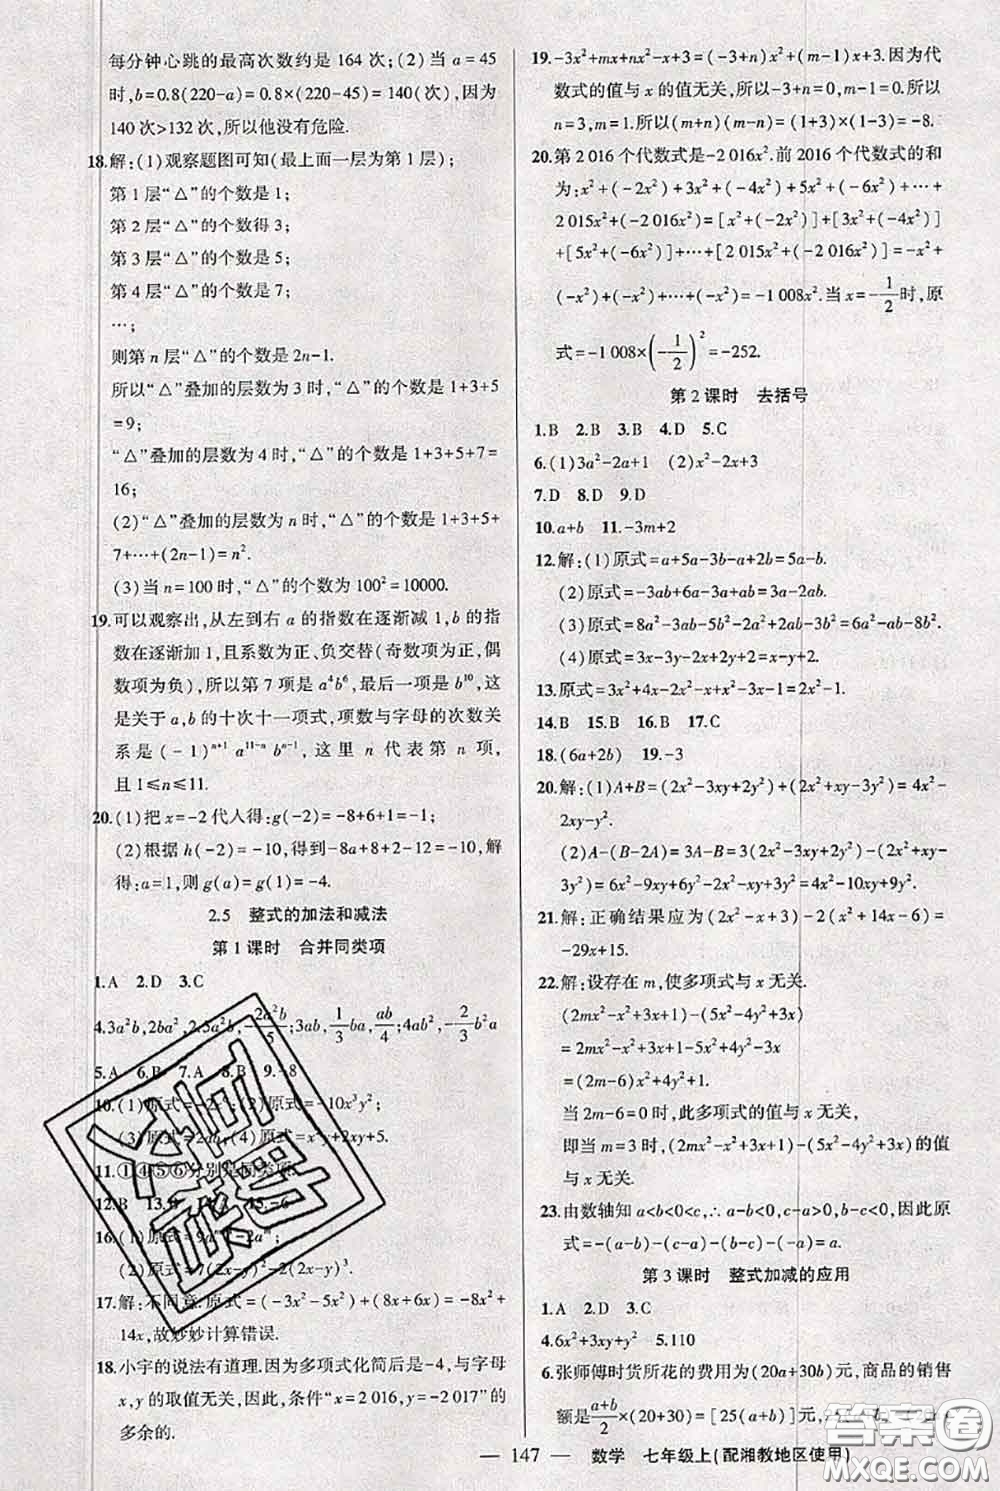 每分钟心跳的最高次数约是 164 次;(2)当 a=45
时,b=0.8(220-a)=0.8×(220-45)=140(次),因为
140 次>132 次,所以他没有危险.
18.解:(1)观察题图可知(最上面一层为第 1 层);
第 1 层“△”的个数是 1;
第 2 层“△”的个数得 3;
第 3 层“△”的个数是 5;
第 4 层“△”的个数是 7;
…;
则第 n 层“△”的个数是 2n-1.
所以“△”叠加的层数为 3 时,“△”的个数是 1+3+5
=9;
“△”叠加的层数为 4 时,“△”的个数是 1+3+5+7=
16;
(2)“△”叠加的层数为 n 时,“△”的个数是 1+3+5+
7+…+(2n-1)=n².
(3)当 n=100 时,“△”的个数为 100²=10000.
19.可以观察出,从左到右 a 的指数在逐渐减 1,b 的指
数在逐渐加 1,且系数为正、负交替(奇数项为正,偶
数项为负),所以第 7 项是 a⁴b⁶,最后一项是 b¹⁰,这
是关于 a,b 的十次十一项式,项数与字母的次数关
系是 (-1)ⁿ⁺¹ a¹¹⁻ⁿ bⁿ⁻¹,这里 n 代表第 n 项,
且 1≤n≤11.
20.(1)把 x=-2 代人得:g(-2)=-8+6+1=-1;
(2)根据 h(-2)=-10,得到-8a+8+2-12=-10,解
得:a=1,则 g(a)=g(1)=-4.
2.5 整式的加法和减法
第 1 课时 合并同类项
1.A 2.D 3.C
4.3a²b,2ba²,2.5a²b,-2a²b/5;3ab,1/3ba,ab/4;4ab²,-2/3b²a
5.A 6.B 7.A 8.B 9.-8
10.(1)原式=-2x²;(2)原式=-10x³y²;
(3)原式=2ab;(4)原式=
11.①④⑤⑥分别是同类项.
12.B 13. 15.-6
16.(1)原式=9a
(2)原式=7(2x-y)²-2(2x-y)³
17.解:不同意.原式=(-3x²-5x²)+(8x+6x)=-8x²+
14x,故妙妙计算错误.
18.小宇的说法有道理.因为多项式化简后是-4,与字母
x,y 的取值无关,因此,条件“x=2 016,y=-2 017”是
多余的.
19.-3x²+mx+nx²-x+3=(-3+n)x²+(m-1)x+3.因为代
数式的值与 x 的值无关,所以-3+n=0,m-1=0.所以
n=3,m=1.所以(m+n)(m-n)=(1+3)×(1-3)=-8.
20.第 2 016 个代数式是-2 016x².前 2016 个代数式的和
为:x²+(-2x²)+3x²+(-4x²)+5x²+(-6x²)+…+
2 015x²+(-2 016x²)=[x²+(-2x²)]+[3x²+(-4x²)]
+[5x²+(-6x²)]+…+[2 015x²+(-2 016x²)]=-x²+
(-x²)+(-x²)+…+(-x²)=-1 008x².当 x=-1/2时,原
式=-1 008×(-1/2)²=-252.
第 2 课时 去括号
1.B 2.B 3.B 4.D 5.C
6.(1)3a²-2a+1 (2)x²-2x+3
7.D 8.D 9.D
10.a+b 11.-3m+2
12.解:(1)原式=a+5a-3b-a+2b=5a-b.
(2)原式=-3ab+6a-3a-b+3b=3a+2b-3ab.
(3)原式=8a²-3ab-5b²-2a²+2ab-3b²=6a²-ab-8b².
(4)原式=-3x+2y-4x+2y+2x=-5x+4y.
13.原式=3x²+4x-2x²-x+x²-3x-1=2x²-1.
14.B 15.B 16.B 17.C
18.(6a+2b) 19.-3
20.解:(1)A+B=(2x²-3xy+2y²)+(2x²+xy-3y²)=4x²-
2xy-y².
(2)A-(B-2A)=3A-B=3(2x²-3xy+2y²)-(2x²+xy-
3y²)=6x²-9xy+6y²-2x²-xy+3y²=4x²-10xy+9y².
21.解:正确结果应为(2x²-15x+9)-2(x²+14x-6)=
-29x+15.
22.解:设存在 m,使多项式与 x 无关.
(2mx²-x²+3x+1)-(5x²-4y²+3x)
=2mx²-x²+3x+1-5x²+4y²-3x
=(2m-6)x²+4y²+1.
当 2m-6=0 时,此多项式的值与 x 无关,
即当 m=3 时,(2mx²-x²+3x+1)-(5x²-4y²+3x)的值
与 x 无关.
23.由数轴知 a<b<0<c,∴a-b<0,c-a>0,b-c<0,因此原
式=-b-(a-b)-(c-a)-(b-c)-(-a)=a.
第 3 课时 整式加减的应用
1.A 2.D 3.C
4.6x²+3xy+y² 5.110
6.张师傅时货所花的费用为(20a+30b)元,商品的销售
额是(a+b)/2×(20+30)=[25(a+b)]元,
— 147 — 数学 七年级上(配湘教地区使用)
答案圈
MXQE.COM